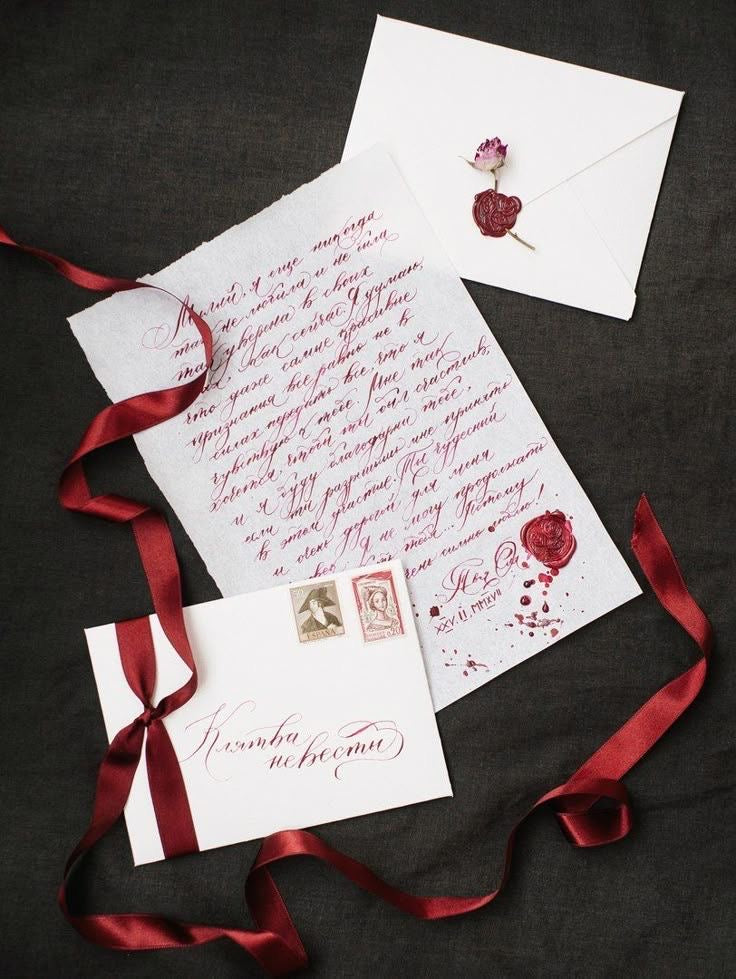 Милый, я еще никогда
так не любила и не была
так уверена в своих
как сейчас. Я думаю,
что даже самые красивые
признания все равно не в
силах передать все, что я
чувствую к тебе. Мне так
хочется, чтобы ты был счастлив,
и я буду благодарна тебе,
если ты разрешишь мне принять
в этом участие. Ты чудесный
и очень дорогой для меня
Я не могу продолжать
тебя... Потому
очень сильно люблю!
XXV.II.MMXVII
ESPAÑA
Клятва
невесты